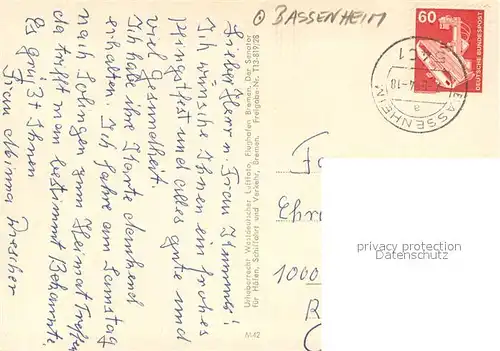 ⊙ BASSENHEIM
60
DEUTSCHE BUNDESPOST
BASSENHEIM
a
Lieber Herr u. Frau Stumms!
Ich wünsche Ihnen ein frohes
Pfingstfest und alles gute und
viel Gesundheit.
Ich habe ihre Karte dankend
erhalten. Ich fahre am Samstag
nach Solingen zum Heimat Treffen
da trifft man bestimmt Bekannte.
Es grüßt Ihnen
Frau Minna Drescher
Urheberrecht Westdeutscher Luftfoto, Flughafen Bremen. Der Senator
für Häfen, Schiffahrt und Verkehr, Bremen. Freigabe-Nr. T13-819/28
N 42
Fa
Ehr
1000
privacy protection
Datenschutz